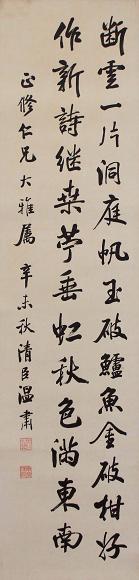 断雲一片洞庭帆玉破鱸魚金破柑好
作新詩继桒苧垂虹秋色満東南
正修仁兄大雅屬 辛未秋清臣温肅